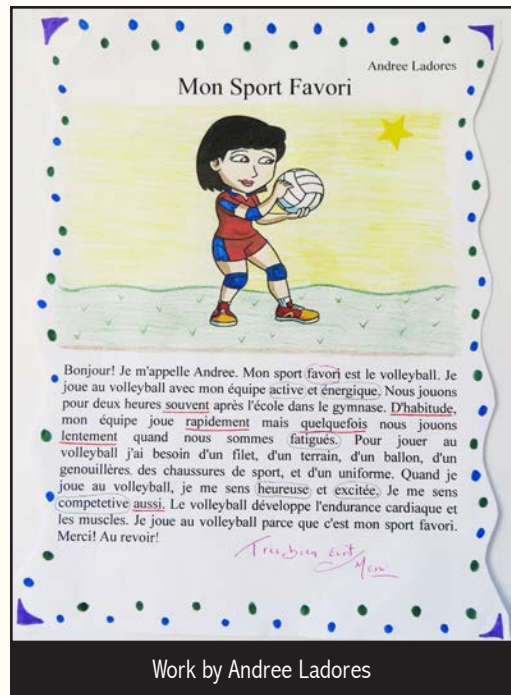 Andree Ladores
Mon Sport Favori
Bonjour! Je m'appelle Andree. Mon sport favori est le volleyball. Je
joue au volleyball avec mon équipe active et énergique. Nous jouons
pour deux heures souvent après l'école dans le gymnase. D'habitude,
mon équipe joue rapidement mais quelquefois nous jouons
lentement quand nous sommes fatigués. Pour jouer au
volleyball j'ai besoin d'un filet, d'un terrain, d'un ballon, d'un
genouillères, des chaussures de sport, et d'un uniforme. Quand je
joue au volleyball, je me sens heureuse et excitée. Je me sens
competetive aussi. Le volleyball développe l'endurance cardiaque et
les muscles. Je joue au volleyball parce que c'est mon sport favori.
Merci! Au revoir!
Tres bien écrit
Work by Andree Ladores